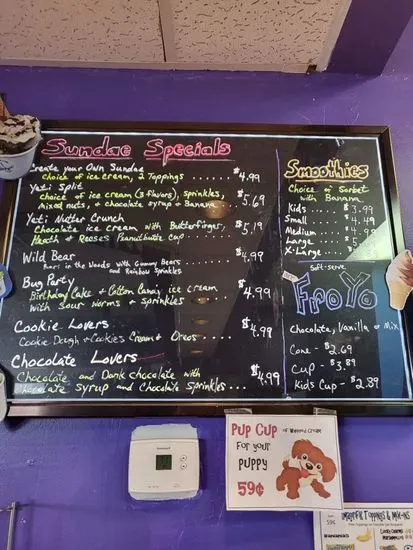 Sundae Specials
Create Your Own Sundae
choice of ice cream, 2 Toppings ...... $4.99
Yeti Split
choice of ice cream (3 flavors), sprinkles,
mixed nuts, + chocolate syrup + Banana... $5.69
Yeti Nutter Crunch
Chocolate ice cream with Butterfinger,
Heath + Reeses Peanutbutter Cup... $5.19
Wild Bear ...... $4.99
Bears in the Woods with Gummy Bears
and Rainbow Sprinkles
Bug Party
Birthday Cake + Cotton Candy ice cream
with Sour worms + sprinkles ... $4.99
Cookie Lovers
Cookie Dough + Cookies Cream + Oreos... $4.99
Chocolate Lovers
Chocolate and Dark chocolate with
chocolate syrup and Chocolate Sprinkles... $4.99
Smoothies
Choice of Sorbet
with Banana
Kids ... $3.99
Small
Medium
Large
X-Large
Soft-serve
FroYo
Chocolate, Vanilla or Mix
Cone - $2.69
Cup - $3.89
Kids Cup - $2.89
Pup Cup of Whipped Cream
For your
puppy
59¢
Toppings & Mix-ins